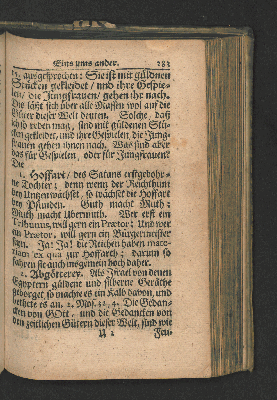 Eins ums ander. 283
15. ausgesprochen: Sie ist mit güldnen
Stücken gekleidet / und ihre Gespie-
len / die Jungfrauen / gehen ihr nach.
Die läst sich über alle Massen wol auf die
Güter dieser Welt deuten. Solche, daß
ich so reden mag, sind mit güldenen Stü-
cken gekleidet, und ihre Gespielen die Jung-
frauen gehen ihnen nach. Was sind aber
das für Gespielen, oder für Jungfrauen?
Die
1. Hoffart / des Satans erstgebohr-
ne Tochter; denn wenn der Reichthum
Untzenwächst, so wächset die Hoffart
bey Pfunden. Guth macht Muth;
Muth macht Ubermuth. Wer erst ein
Tribunus, will gern ein Prætor; Und wer
ein Prætor, will gern ein Bürgermeister
seyn. Ja! Ja! die Reichen haben mate-
rialien ex qua zur Hoffarth; darum so
fahren sie auch insgemein hoch daher.
2. Abgötterey. Als Israel von denen
Egyptern güldene und silberne Geräthe
geborget so machte es ein Kalb davon, und
bethete es an. 2. Mos. 32, 4. Die Gedan-
cken von GOtt, und die Gedancken von
den zeitlichen Gütern dieser Welt, sind wie
2 Feu-